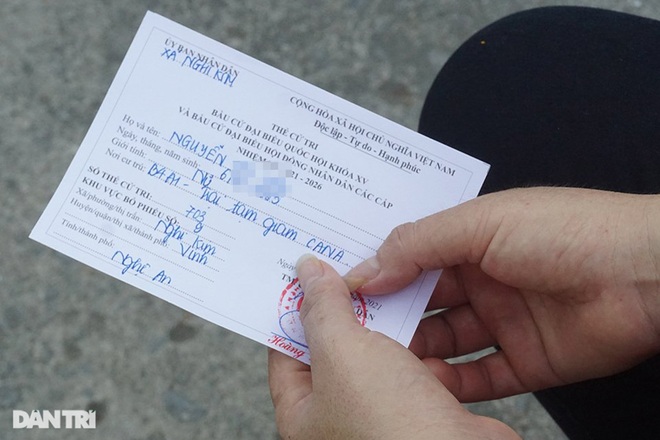 ỦY BAN NHÂN DÂN
XÃ NGHI KIM
CỘNG HÒA XÃ HỘI CHỦ NGHĨA VIỆT NAM
Độc lập - Tự do - Hạnh phúc
THẺ CỬ TRI
BẦU CỬ ĐẠI BIỂU QUỐC HỘI KHÓA XV
VÀ BẦU CỬ ĐẠI BIỂU HỘI ĐỒNG NHÂN DÂN CÁC CẤP
NHIỆM 021 - 2026
Họ và tên: NGUYỄN
Ngày, tháng, năm sinh: 6
Giới tính: Nữ
Nơi cư trú: - trại tạm giam CANA
SỐ THẺ CỬ TRI: 703
KHU VỰC BỎ PHIẾU SỐ: 9
Xã/phường/thị trấn: Nghi Kim
Huyện/quận/thị xã/thành phố: Vinh
Tỉnh/thành phố: Nghệ An
Ngày
2021
TM
DÂN
Hoàng
DÂN TRÍ